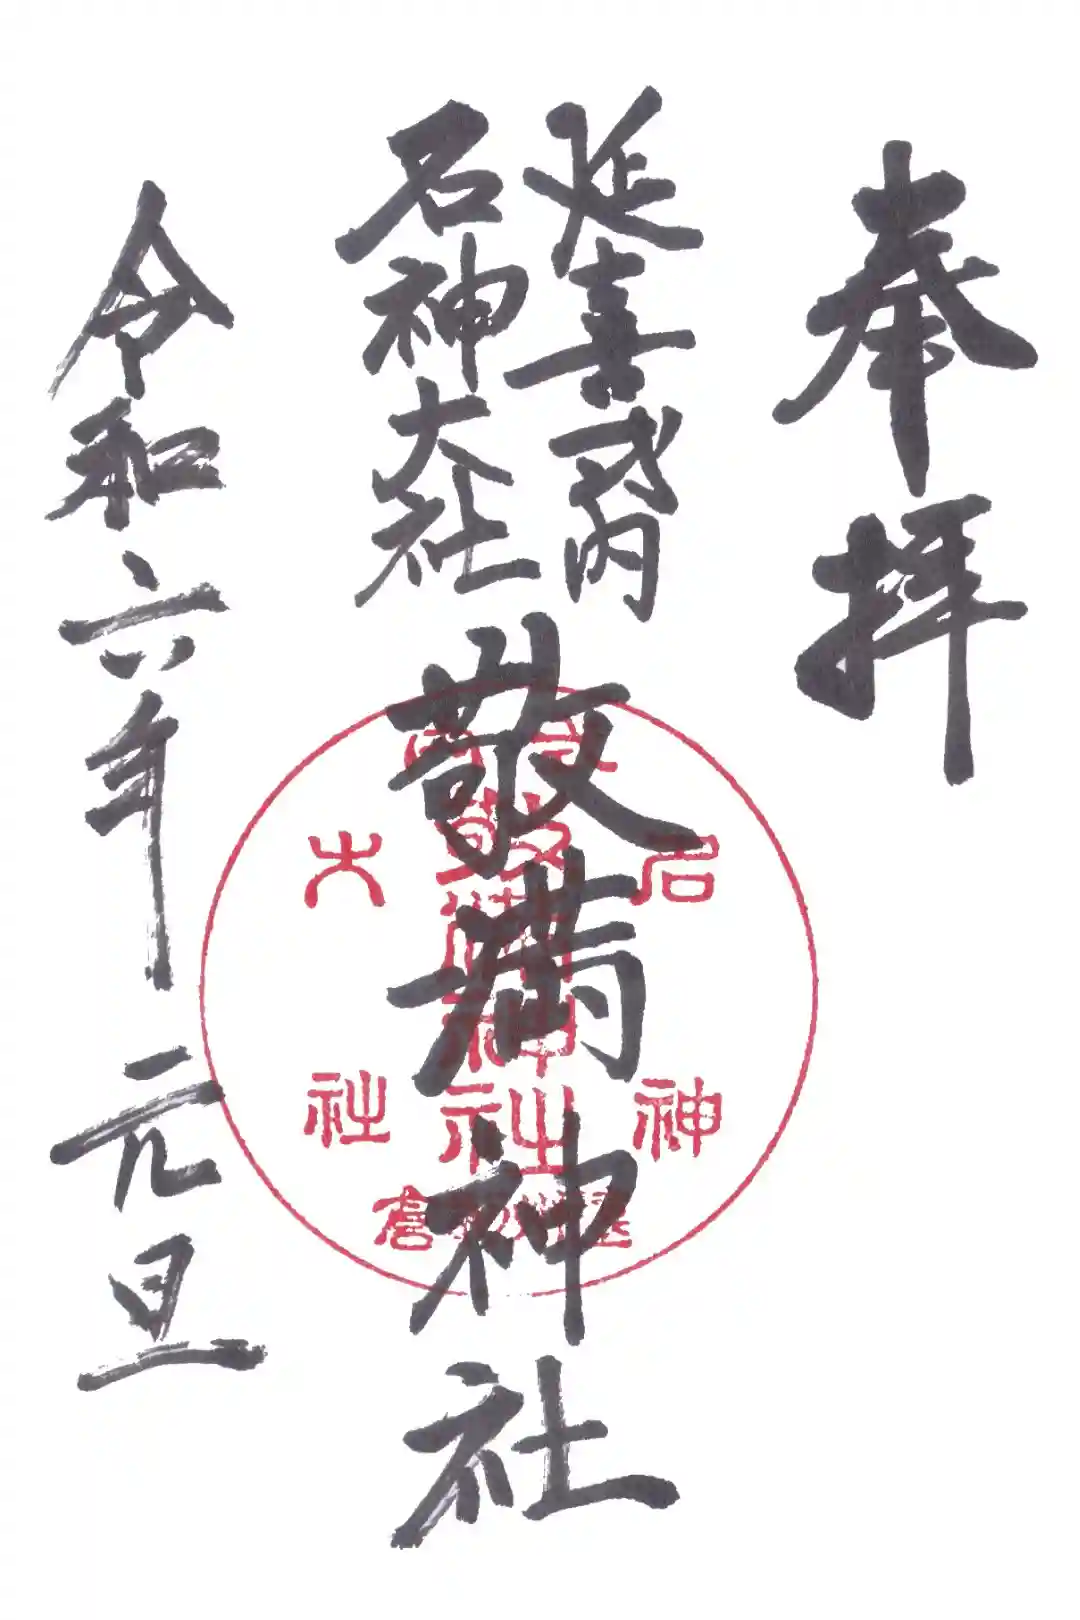 奉拝
延喜式内
名神大社
敬満神社
令和六年 元旦
名神大社
敬満神社